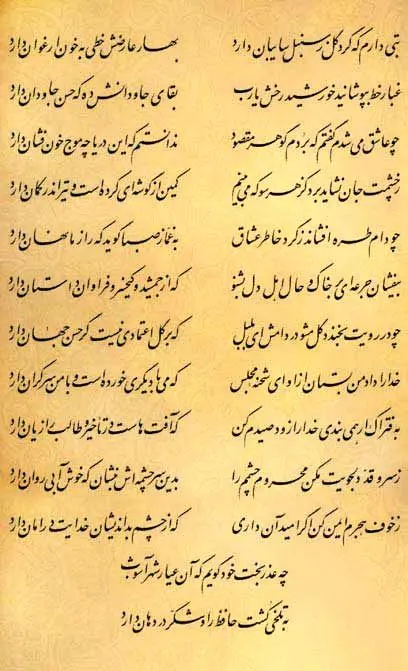 بتی دارم که گرد گل ز سنبل سایبان دارد بهار عارضش خطی به خون ارغوان دارد
غبار خط بپوشانید خورشید رخش یا رب بقای جاودانش ده که حسن جاودان دارد
چو عاشق می‌شدم گفتم که بردم گوهر مقصود ندانستم که این دریا چه موج خون فشان دارد
ز چشمت جان نشاید برد کز هر سو که می‌بینم کمین از گوشه‌ای کرده‌ست و تیر اندر کمان دارد
چو دام طره افشاند ز گرد خاطر عشاق به غماز صبا گوید که راز ما نهان دارد
بیفشان جرعه‌ای بر خاک و حال اهل دل بشنو که از جمشید و کیخسرو فراوان داستان دارد
چو در رویت بخندد گل مشو در دامش ای بلبل که بر گل اعتمادی نیست گر حسن جهان دارد
خدا را داد من بستان از او ای شحنه مجلس که می با دیگری خورده‌ست و با من سر گران دارد
به فتراک ار همی بندی خدا را زود صیدم کن که آفت هاست در تأخیر و طالب را زیان دارد
ز سرو قد دلجویت مکن محروم چشمم را بدین سرچشمه‌اش بنشان که خوش آبی روان دارد
ز خوف هجرم ایمن کن اگر امید آن داری که از چشم بداندیشان خدایت در امان دارد
چه عذر بخت خود گویم که آن عیار شهرآشوب
به تلخی کشت حافظ را و شکر در دهان دارد